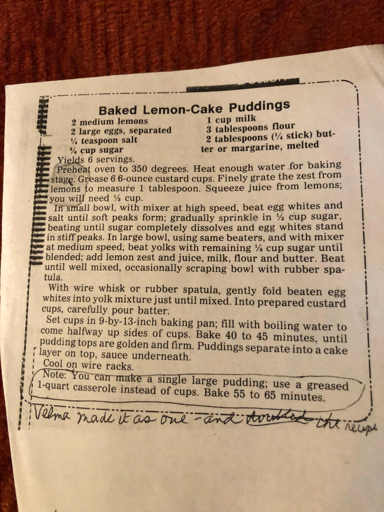 Baked Lemon-Cake Puddings
2 medium lemons
2 large eggs, separated
¼ teaspoon salt
¾ cup sugar
1 cup milk
3 tablespoons flour
2 tablespoons (¼ stick) but-
ter or margarine, melted
Yields 6 servings.
Preheat oven to 350 degrees. Heat enough water for baking
stage. Grease 6 6-ounce custard cups. Finely grate the zest from
lemons to measure 1 tablespoon. Squeeze juice from lemons;
you will need ⅓ cup.
In small bowl, with mixer at high speed, beat egg whites and
salt until soft peaks form; gradually sprinkle in ½ cup sugar,
beating until sugar completely dissolves and egg whites stand
in stiff peaks. In large bowl, using same beaters, and with mixer
at medium speed, beat yolks with remaining ¼ cup sugar until
blended; add lemon zest and juice, milk, flour and butter. Beat
until well mixed, occasionally scraping bowl with rubber spa-
tula.
With wire whisk or rubber spatula, gently fold beaten egg
whites into yolk mixture just until mixed. Into prepared custard
cups, carefully pour batter.
Set cups in 9-by-13-inch baking pan; fill with boiling water to
come halfway up sides of cups. Bake 40 to 45 minutes, until
pudding tops are golden and firm. Puddings separate into a cake
layer on top, sauce underneath.
Cool on wire racks.
Note: You can make a single large pudding; use a greased
1-quart casserole instead of cups. Bake 55 to 65 minutes.
Velma made it as one - and doubled the recipe